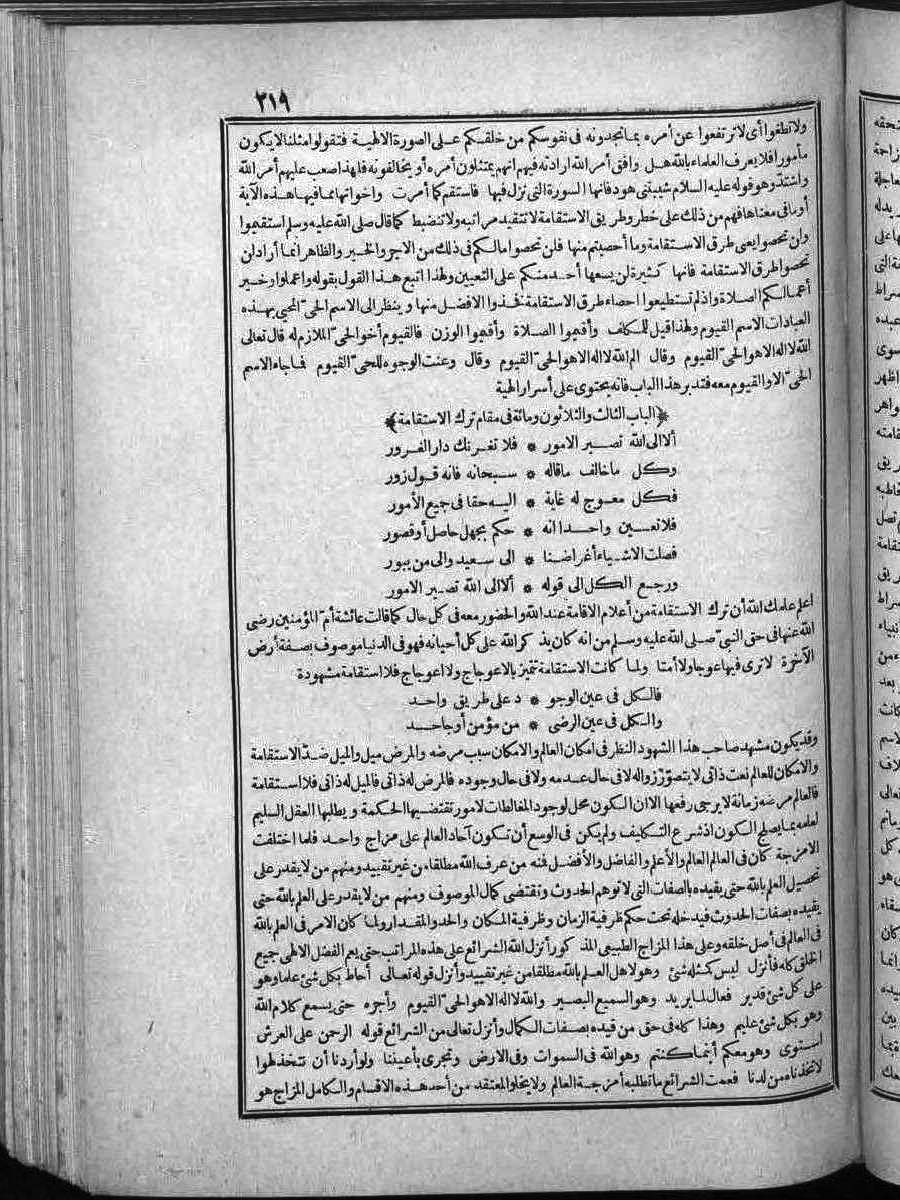 ٢١٩
ولا تطغوا أي لا ترتفعوا عن أمره بما تجدونه في نفوسكم من خلقكم على الصورة الالهية فتقولوا مثلنا لا يكون
مأمورا فلا يعرف العلماء بالله هل وافق أمر الله ارادته فيهم انهم يمتثلون أمره أو يخالفونه فلهذا صعب عليهم أمر الله
واشتد وهو قوله عليه السلام شيبتني هود فانها السورة التي نزل فيها فاستقم كما أمرت واخواتها مما فيها هذه الآية
أو ما في معناها فهم من ذلك على خطر وطريق الاستقامة لا تتقيد مراتبه ولا تنضبط كما قال صلى الله عليه وسلم استقيموا
ولن تحصوا يعني طرق الاستقامة وما أحصيتم منها فلن تحصوا ما لكم في ذلك من الاجر والخير والظاهر انما أراد لن
تحصوا طرق الاستقامة فانها كثيرة لن يسعها أحد منكم على التعيين ولهذا اتبع هذا القول بقوله واعملوا وخير
أعمالكم الصلاة واذ لم تستطيعوا احصاء طرق الاستقامة فخذوا الافضل منها وينظر الى الاسم الحي المحيي بهذه
العبادات الاسم القيوم ولهذا قيل للمكلف وأقيموا الصلاة وأقيموا الوزن فالقيوم أخو الحي الملازم له قال تعالى
الله لا اله الا هو الحي القيوم وقال الم الله لا اله الا هو الحي القيوم وقال وعنت الوجوه للحي القيوم فما جاء الاسم
الحي الا والقيوم معه فتدبر هذا الباب فانه يحتوى على أسرار الهية
﴿الباب الثالث والثلاثون ومائة في مقام ترك الاستقامة﴾
ألا الى الله تصير الامور * فلا تغرنك دار الغرور
وكل ما خالف ما قاله * سبحانه فانه قول زور
فكل معوج له غاية * اليه حقا في جميع الأمور
فلا تعين واحدا انه * حكم بجهل حاصل أو قصور
فصلت الاشياء أغراضنا * الى سعيد والى من يبور
ورجع الكل الى قوله * ألا الى الله تصير الامور
اعلم علمك الله أن ترك الاستقامة من أعلام الاقامة عند الله والحضور معه في كل حال كما قالت عائشة أم المؤمنين رضى
الله عنها في حق النبي صلى الله عليه وسلم من انه كان يذكر الله على كل أحيانه فهو في الدنيا موصوف بصفة أرض
الآخرة لا ترى فيها عوجا ولا أمتا ولما كانت الاستقامة تتميز بالاعوجاج ولا اعوجاج فلا استقامة مشهودة
فالكل في عين الوجو * د على طريق واحد
والكل في عين الرضى * من مؤمن أو جاحد
وقد يكون مشهد صاحب هذا الشهود النظر في امكان العالم والامكان سبب مرضه والمرض ميل والميل ضد الاستقامة
والامكان للعالم نعت ذاتي لا يتصور زواله لا في حال عدمه ولا في حال وجوده فالمرض له ذاتي فالميل له ذاتي فلا استقامة
فالعالم مرضه زمانة لا يرجى رفعها الا ان الكون محل لوجود المغالطات لامور تقتضيها الحكمة ويطلبها العقل السليم
لعلمه بما يصلح الكون اذ شرع التكليف ولم يكن في الوسع أن تكون آحاد العالم على مزاج واحد فلما اختلفت
الامزجة كان في العالم العالم والأعلم والفاضل والأفضل فنه من عرف الله مطلقا من غير تقييد ومنهم من لا يقدر على
تحصيل العلم بالله حتى يقيده بالصفات التي لا توهم الحدوث وتقتضى كمال الموصوف ومنهم من لا يقدر على العلم بالله حتى
يقيده بصفات الحدوث فيدخله تحت حكم ظرفية الزمان وظرفية المكان والحد والمقدار ولما كان الامر في العلم بالله
في العالم في أصل خلقه وعلى هذا المزاج الطبيعي المذكور أنزل الله الشرائع على هذه المراتب حتى يعم الفضل الالهي جميع
الخلق كله فأنزل ليس كمثله شئ وهو لاهل العلم بالله مطلقا من غير تقييد وأنزل قوله تعالى أحاط بكل شئ علما وهو
على كل شئ قدير فعال لما يريد وهو السميع البصير والله لا اله الا هو الحي القيوم وأجره حتى يسمع كلام الله
وهو بكل شئ عليم وهذا كله في حق من قيده بصفات الكمال وأنزل تعالى من الشرائع قوله الرحمن على العرش
استوى وهو معكم أينما كنتم وهو الله في السموات وفي الارض وتجرى بأعيننا ولو أردنا أن نتخذ لهوا
لاتخذناه من لدنا فعمت الشرائع ما تطلبه أمزجة العالم ولا يخلو المعتقد من أحد هذه الاقسام والكامل المزاج هو